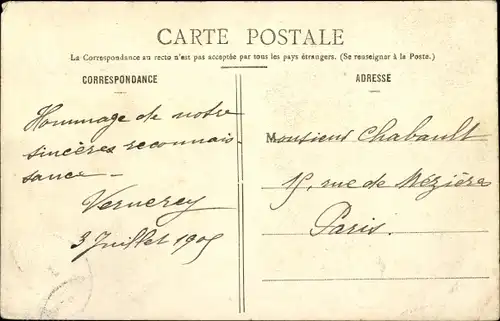 CARTE POSTALE
La Correspondance au recto n'est pas acceptée par tous les pays étrangers. (Se renseigner à la Poste.)
CORRESPONDANCE
Hommage de notre
sincères reconnais-
sance –
Vernerey
3 Juillet 1905
ADRESSE
Monsieur Chabault
15, rue de Mézières
Paris.